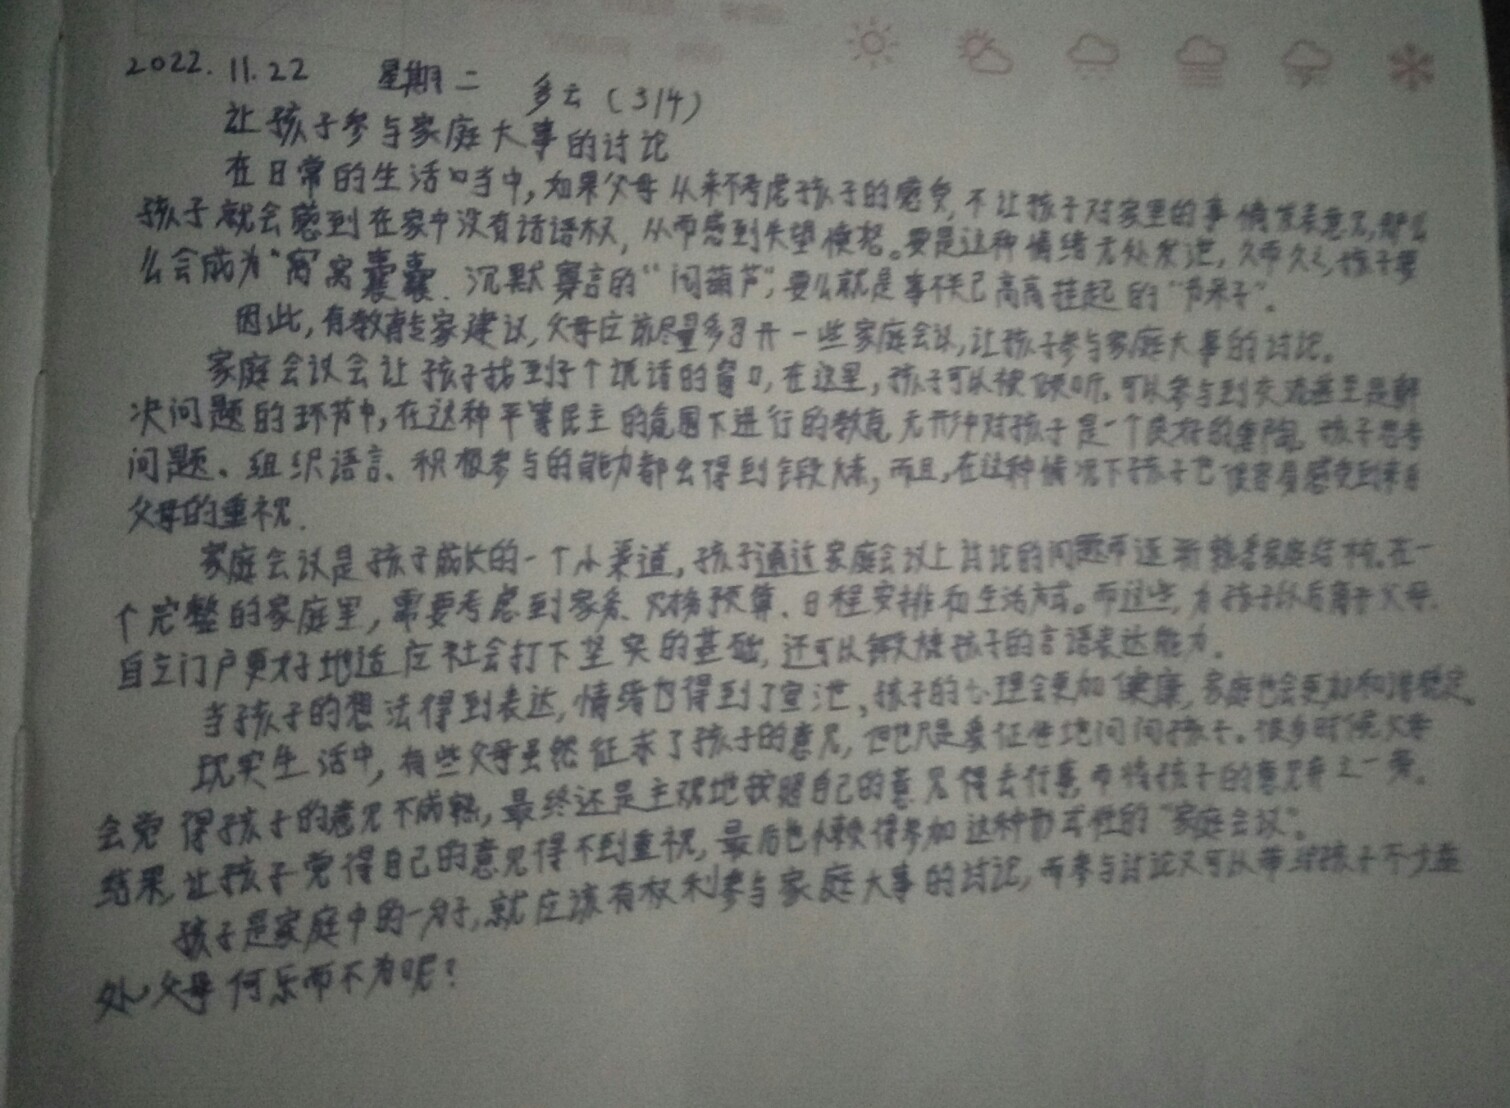 2022.11.22 星期二 多云(314)
让孩子参与家庭大事的讨论
在日常的生活当中,如果父母从来不考虑孩子的感受,不让孩子对家里的事情发表意见,那么
孩子就会感到在家中没有话语权,从而感到失望、愤怒。要是这种情绪无处发泄,久而久之,孩子要
么会成为“窝窝囊囊、沉默寡言的“闷葫芦”,要么就是事不关己高高挂起的“书呆子”。
因此,有教育专家建议,父母应该尽量多召开一些家庭会议,让孩子参与家庭大事的讨论。
家庭会议会让孩子找到个说话的窗口,在这里,孩子可以被倾听,可以参与到交流甚至是解
决问题的环节中,在这种平等民主的氛围下进行的教育,无形中对孩子是一个良好的熏陶,孩子思考
问题、组织语言、积极参与的能力都会得到锻炼,而且,在这种情况下孩子也很容易感受到来自
父母的重视。
家庭会议是孩子成长的一个小渠道,孩子通过家庭会议上讨论的问题而逐渐熟悉家庭结构。在一
个完整的家庭里,需要考虑到家务、财务预算、日程安排和生活方式。而这些,为孩子以后离开父母、
自立门户更好地适应社会打下坚实的基础,还可以锻炼孩子的言语表达能力。
当孩子的想法得到表达,情绪也得到了宣泄,孩子的心理会更加健康,家庭也会更加和谐稳定。
现实生活中,有些父母虽然征求了孩子的意见,但也只是象征性地问问孩子。很多时候父母
会觉得孩子的意见不成熟,最终还是主观地按照自己的意见得去行事,而将孩子的意见弃之一旁。
结果,让孩子觉得自己的意见得不到重视,最后也不得参加这种形式性的“家庭会议”。
孩子是家庭中的一份子,就应该有权利参与家庭大事的讨论,而参与讨论又可以带给孩子不少益
处,父母何乐而不为呢?